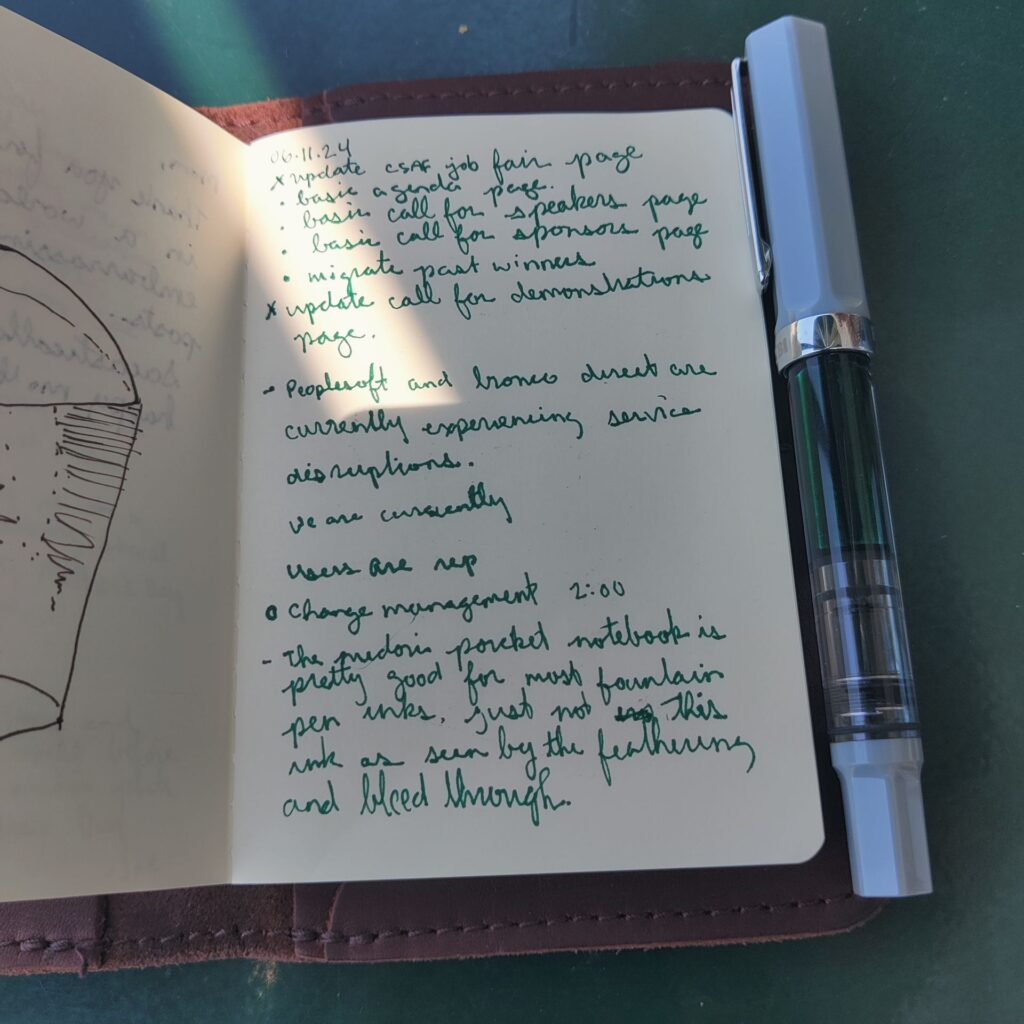 06.11.24
x update CSAF job fair page
• basic agenda page.
• basic call for speakers page
• basic call for sponsors page
• migrate past winners
x update call for demonstrations
page.
- Peoplesoft and bronco direct are
currently experiencing service
disruptions.
we are currently
users are rep
o Change management 2:00
- The midori pocket notebook is
pretty good for most fountain
pen inks, just not this
ink as seen by the feathering
and bleed through.